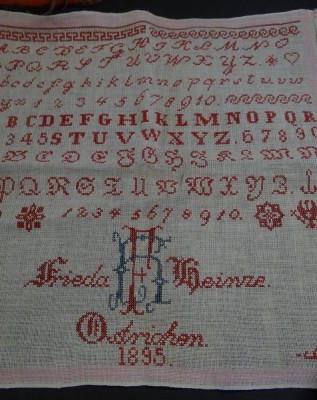 A B C D E F G H I K L M N O
P Q R S T U V W X Y Z
a b c d e f g h i k l m n o p q r s t u v w
1 2 3 4 5 6 7 8 9 10.
B C D E F G H I K L M N O P Q R
3 4 5 S T U V W X Y Z . 6 7 8 9 0
P Q R S T U V W X Y Z
1 2 3 4 5 6 7 8 9 10.
Frieda H Heinze.
Ostrichen.
1895.